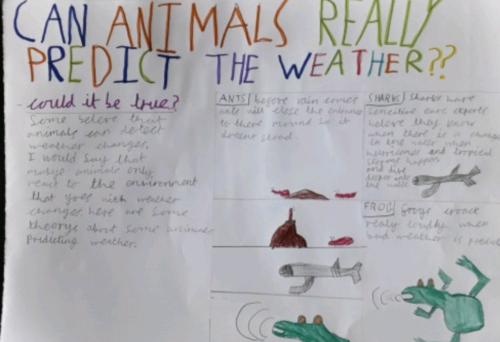 CAN ANIMALS REALLY
PREDICT THE WEATHER??
could it be true?
Some beleve that
animals can detect
weather changes,
I would say that
maybe animals only
react to the environment
that goes with weather
changes here are some
theorys about some animals
Predicting weather.
ANTS before rain comes
ants will close the entrance
to there mound so it
doesnt flood.
SHARKS Sharks have
sensitive ears experts
beleve they know
when there is a change
in the water when
hurricanes and tropical
storms happen
and dive
deeper into
the water
FROG Frogs croack
realy loudly when
bad weather is